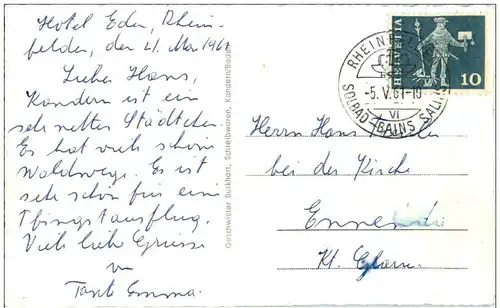 Hotel Eden, Rhein-
felden, den 21. Mai 1961
Lieber Hans,
Kandern ist ein
sehr nettes Städtchen.
Es hat viele schöne
Waldwege. Es ist
sehr schön für ein
Pfingstausflug.
Viele liebe Grüsse
von
Tante Emma.
Geschwister Burkhart, Schreibwaren, Kandern/Baden
RHEINFELDEN
-5.V.61-18
VI
SOLBAD BAINS SALINS
HELVETIA
10
Herrn Hans
bei der Kirche
Ennenda
Kt. Glarus.